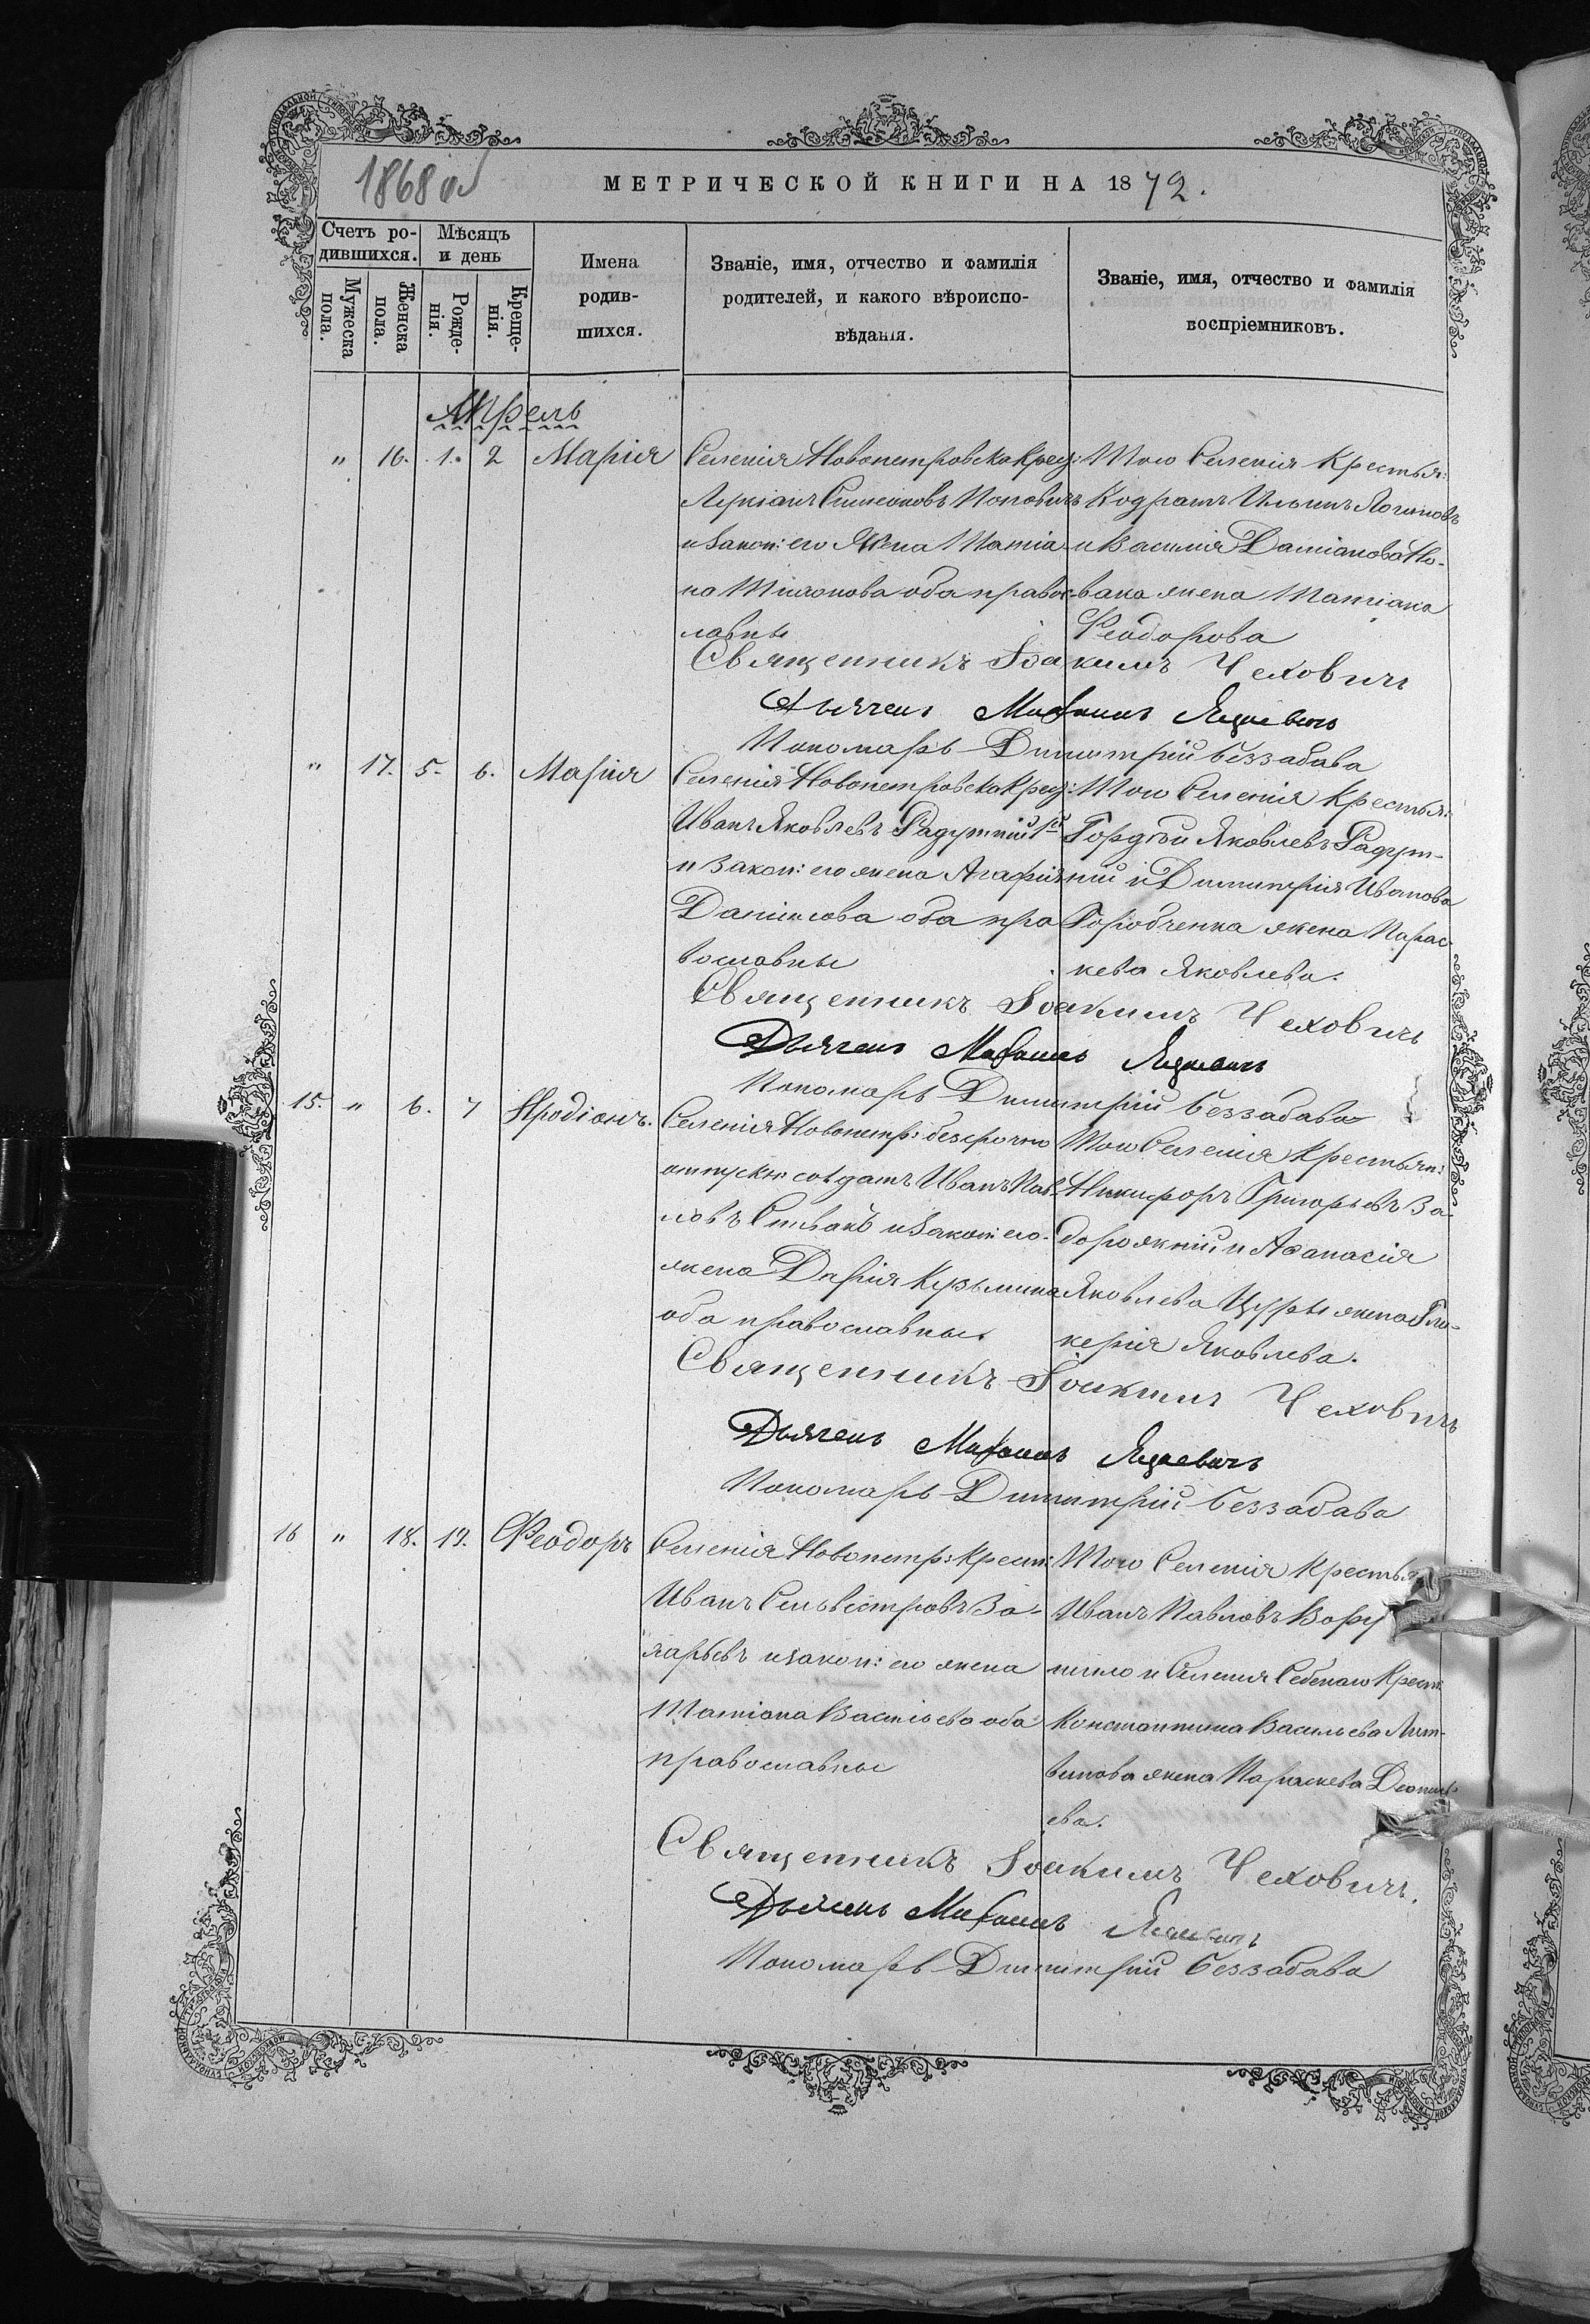 1868 об
МЕТРИЧЕСКОЙ КНИГИ НА 1872.
Счетъ ро-
дившихся.
Мѣсяцъ
и день
Мужеска
пола.
Женска
пола.
Рожде-
нія.
Креще-
нія.
Имена
родив-
шихся.
Званіе, имя, отчество и фамилія
родителей, и какого вѣроиспо-
вѣданія.
Званіе, имя, отчество и фамилія
воспріемниковъ.
Апрель
" 16. 1. 2 Марія
Селенія Новопетровска Крес:
Лукіанъ Симеоновъ Поповичъ
и закон: его жена Матіа-
на Тихонова оба правос-
лавны
Того Селенія Крестья:
Кодратъ Ильинъ Логиновъ
и Василія Даміанова Но-
вака жена Татіана
Феодорова
Священникъ Іоакимъ Чеховичъ
Дьячекъ Михаилъ Яцкевичъ
Пономарь Димитрій Беззабава
" 17. 5. 6. Марія
Селенія Новопетровска Крес:
Иванъ Яковлевъ Радутній
и закон: его жена Агафія
Даніилова оба пра
вославны
Того Селенія Крестья:
Гордѣй Яковлевъ Радут-
ній и Димитрія Иванова
Горобченка жена Парас-
кева Яковлева.
Священникъ Іоакимъ Чеховичъ
Дьячекъ Михаилъ Яцкевичъ
Пономарь Димитрій Беззабава
15. " 6. 7 Иродіонъ.
Селенія Новопетр: безсрочно
отпускн: солдатъ Иванъ Пав-
ловъ Спивакъ и закон: его
жена Дарія Кузьмина
оба православны.
Того Селенія Крестьян:
Никифоръ Григорьевъ За-
дорожній и Афанасія
Яковлева Цурры жена Гли-
керія Яковлева.
Священникъ Іоакимъ Чеховичъ
Дьячекъ Михаилъ Яцкевичъ
Пономарь Димитрій Беззабава
16 " 18. 19. Феодоръ
Селенія Новопетр: Крест:
Иванъ Сильвестровъ За-
харьевъ и закон: его жена
Татіана Васильева оба
православны
Того Селенія Крестья
Иванъ Павловъ
и Селенія Крест:
Константина Васильева Лит-
винова жена Параскева Леонть-
ева.
Священникъ Іоакимъ Чеховичъ.
Дьячекъ Михаилъ Яцкевичъ
Пономарь Димитрій Беззабава